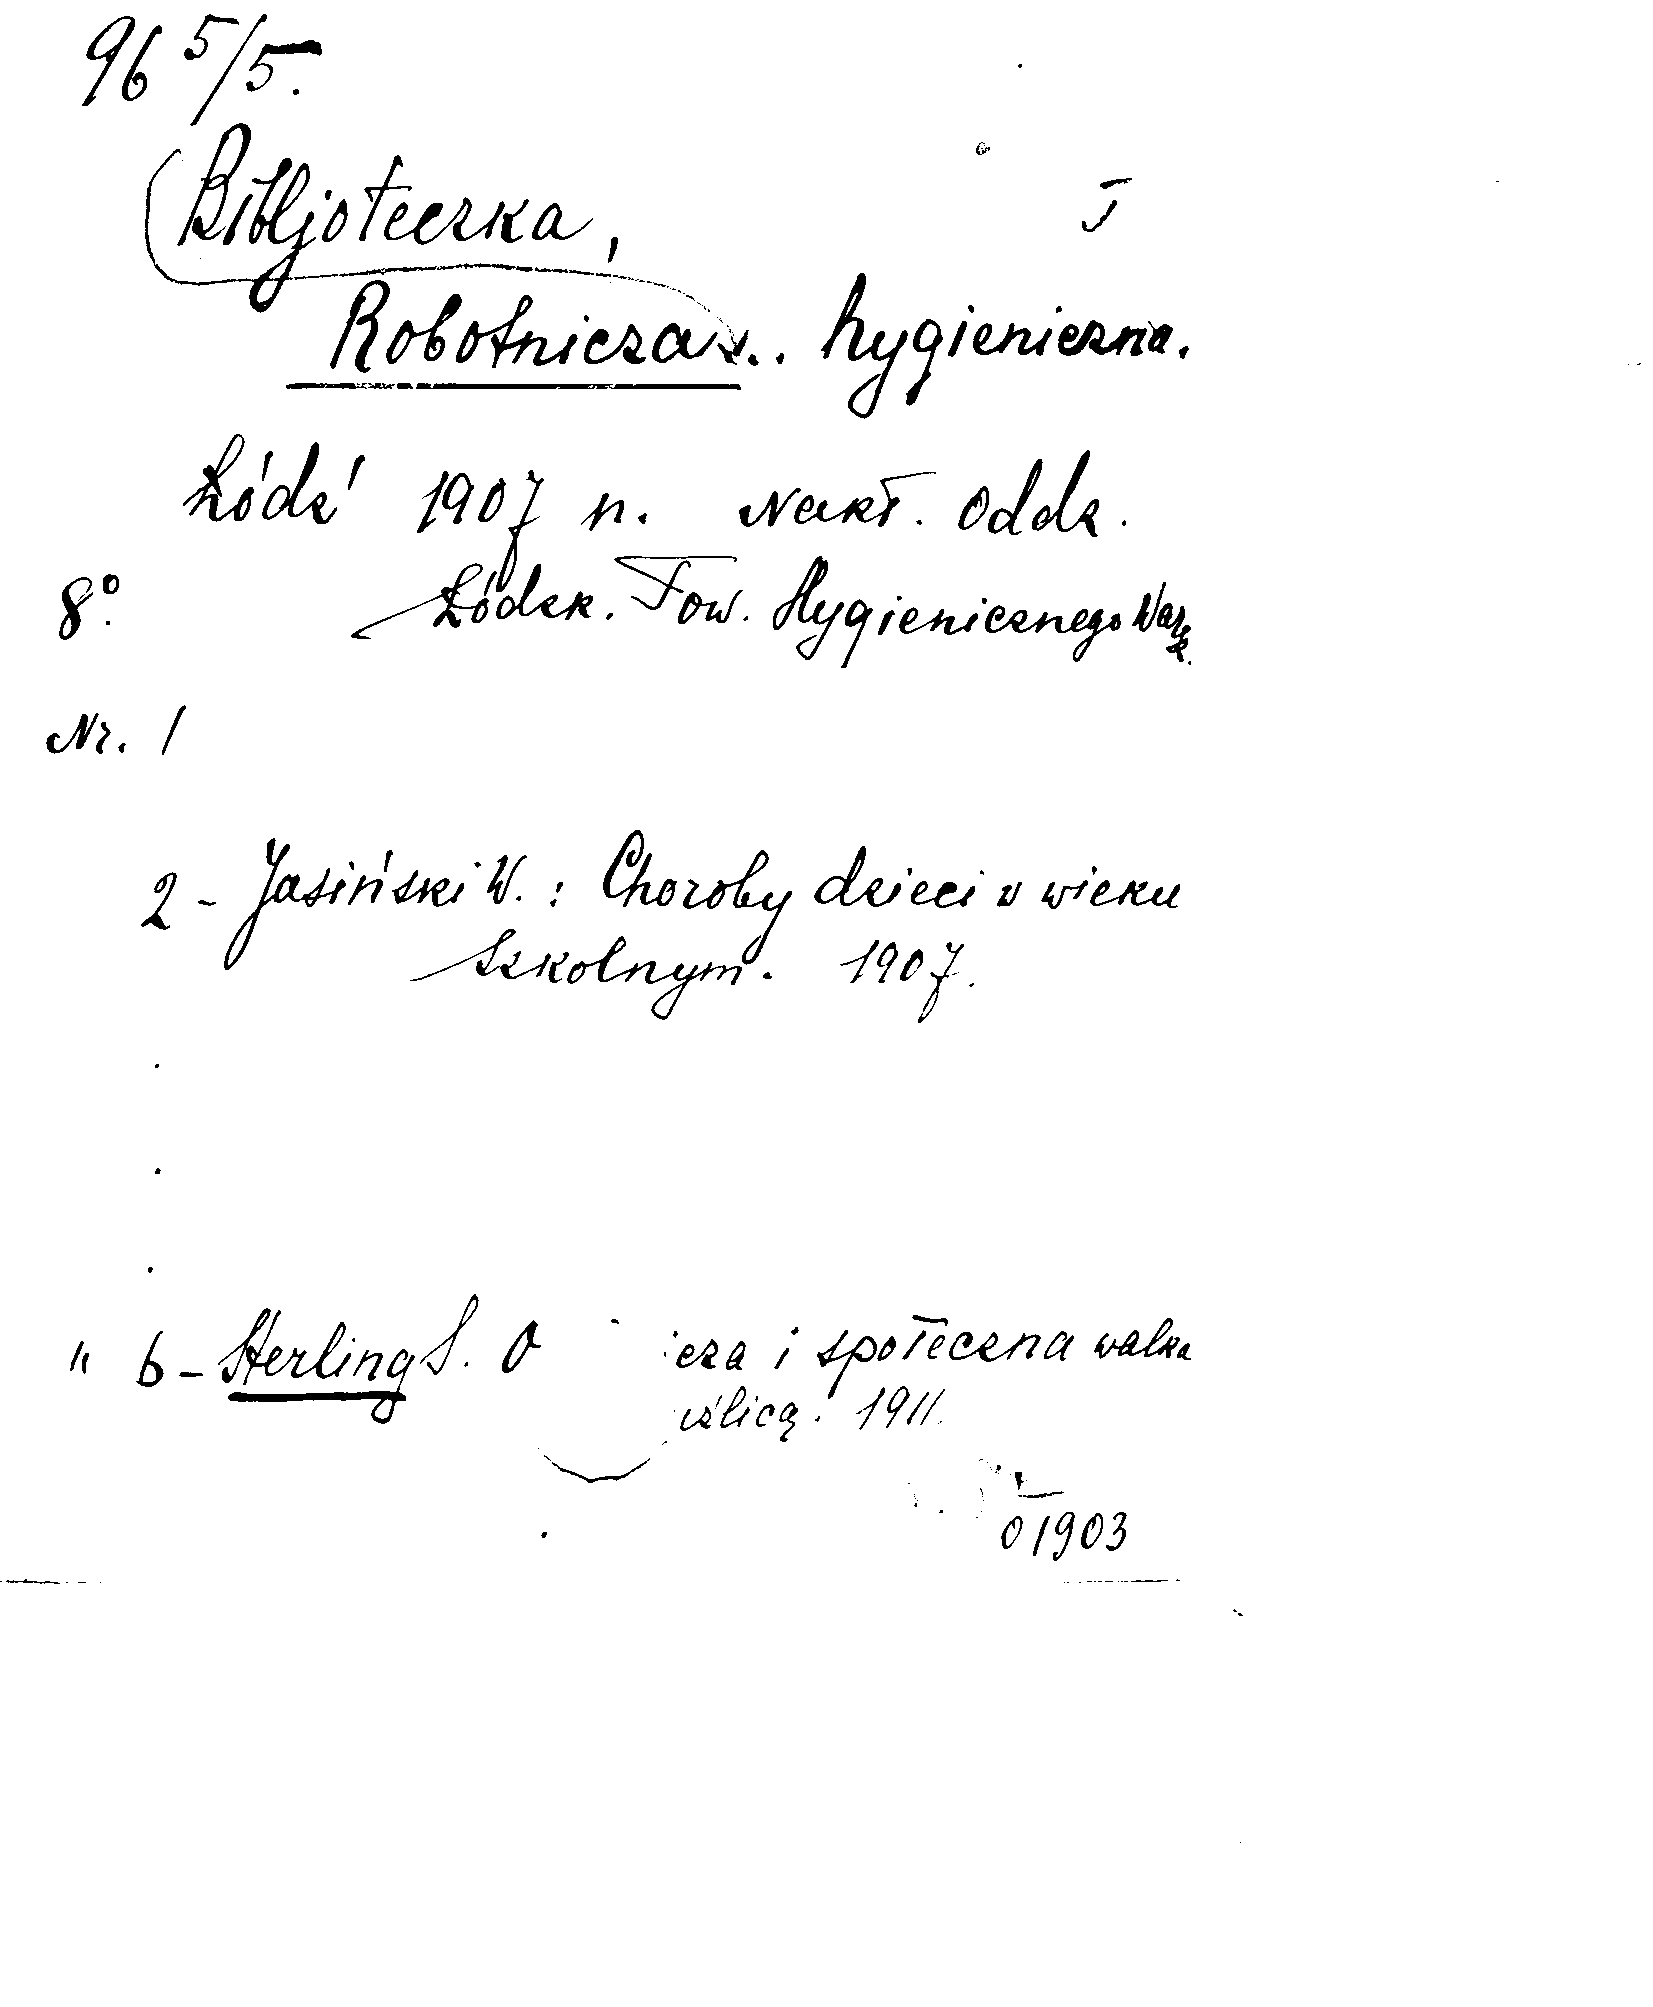 96 5/5.
Bibljoteczka,
J
Robotnicza... hygieniczna.
Łódź 1907 n. Nakł. Oddz.
8°. Łódzk. Tow. Hygienicznego Warsz.
Nr. 1
2 - Jasiński W. : Choroby dzieci w wieku
szkolnym. 1907.
" 6 - Sterling S. O icza i społeczna walka
uźlicą. 1911.
01903